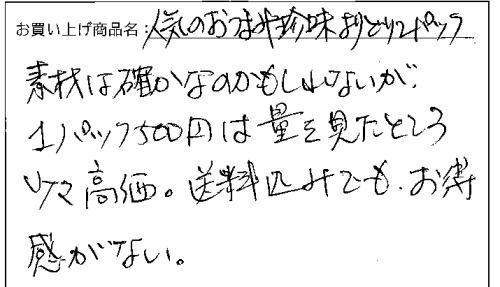 お買い上げ商品名:人気のおつまみ珍味よりどり2パック
素材は確かなのかもしれないが、
1パック500円は量を見たところ
いささか高価。送料込みでも、お得
感がない。